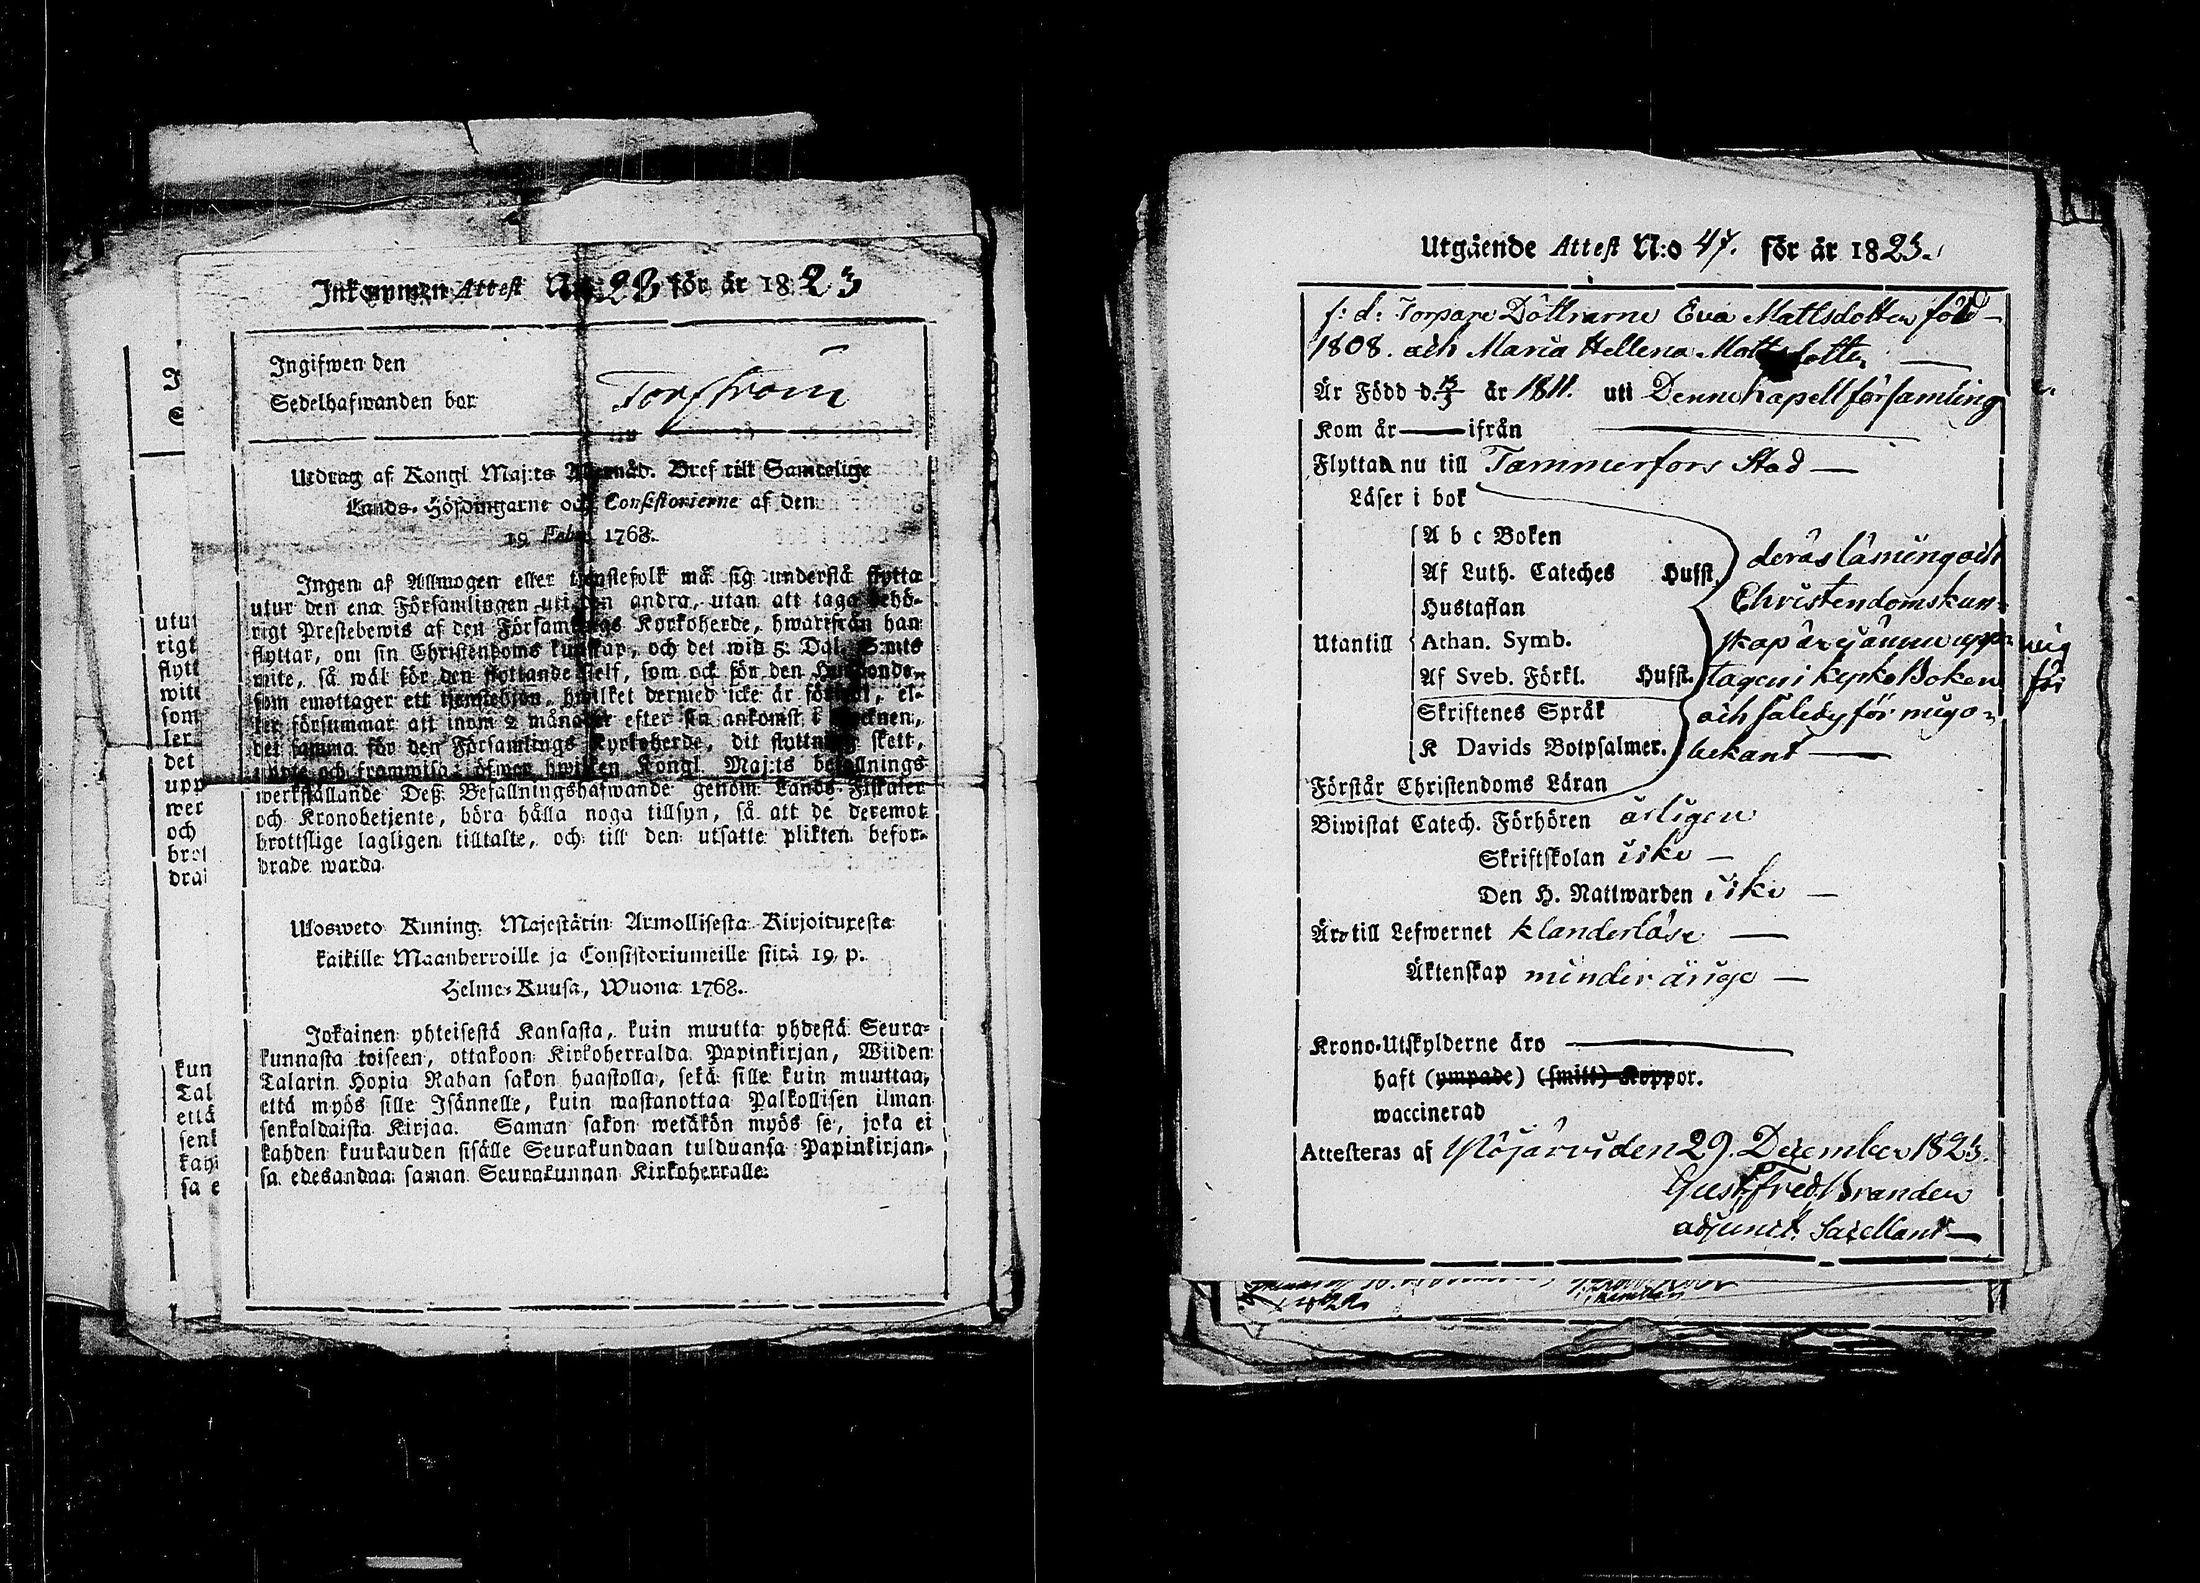 Inkommen Attest N:o 23 för år 1823
Ingifwen den
Sedelhafwanden bor Torfström
Utdrag af Kongl Maj:ts Allernåd. Bref till Samtelige
Lands-Höfdingarne och Consistorierne af den
19 Febr. 1768.
Ingen af Allmogen eller tjenstefolk må sig understå flytta
utur den ena Församlingen uti den andra, utan att taga behö-
rigt Prestebewis af den Församlings Kyrkoherde, hwarifrån han
flyttar, om sin Christendoms kunskap, och det wid 5 Dal. S:mts
wite, så wäl för den flyttande self, som ock för den Husbonde,
som emottager ett tjenstehjon, hwilket dermed icke är försedt, el-
ler försummar att inom 2 månader efter sin ankomst i Socknen,
det samma för den Församlings Kyrkoherde, dit flyttning skett,
upte och framwisa; öfwer hwilken Kongl Maj:ts befallnings
werkställande Deß Befallningshafwande genom Lands-Fiskaler
och Kronobetjente, böra hålla noga tillsyn, så att de deremot
brottslige lagligen tilltalte, och till den utsatte plikten befor-
drade warda.
Ulosweto Kuning. Majestätin Armollisesta Kirjoituxesta
kaikille Maanherroille ja Consistoriumeille siitä 19. p.
Helme-Kuusa, Wuona 1768.
Jokainen yhteisestä Kansasta, kuin muutta yhdestä Seura-
kunnasta toiseen, ottakoon Kirkoherralda Papinkirjan, Wiiden
Talarin Hopia Rahan sakon haastolla, sekä sille kuin muuttaa,
että myös sille Isännelle, kuin wastanottaa Palkollisen ilman
senkaldaista Kirjaa. Saman sakon wetäkön myös se, joka ei
kahden kuukauden sisälle Seurakundaan tulduansa Papinkirjan-
sa edesandaa saman Seurakunnan Kirkoherralle.
utur
rigt
flytt
wite
som
ler
det
upp
wer
och
brot
drad
kun
Tal
että
senk
kah
sa e
Utgående Attest N:o 47. för år 1823.
f: d: Torpare Döttrarne Eva Mattsdotter född
1808. och Maria Hellena Mattsdotter
Är Född d. 13/3 år 1811. uti Denna kapellförsamling
Kom år — ifrån
Flyttar nu till Tammerfors Stad
Läser i bok
A b c Boken
Af Luth. Cateches Hufst.
Hustaflan
Utantill Athan. Symb.
Af Sveb. Förkl. Hufst.
Skriftenes Språk
K Davids Botpsalmer.
Förstår Christendoms Läran
deras läsning och
Christendomskun-
skap är ej ännu upp-
tagen i kyrko Boken
och således för mig o-
bekant
Biwistat Catech. Förhören årligen
Skriftskolan icke
Den H. Nattwarden icke
Äro till Lefwernet klanderlöse
Äktenskap minderårige
Krono-Utskylderne äro
haft (ympade) (smitt) Koppor.
waccinerad
Attesteras af Ylöjärvi den 29. December 1823.
Gust. Fred. Branden
adjunct. Sacellani